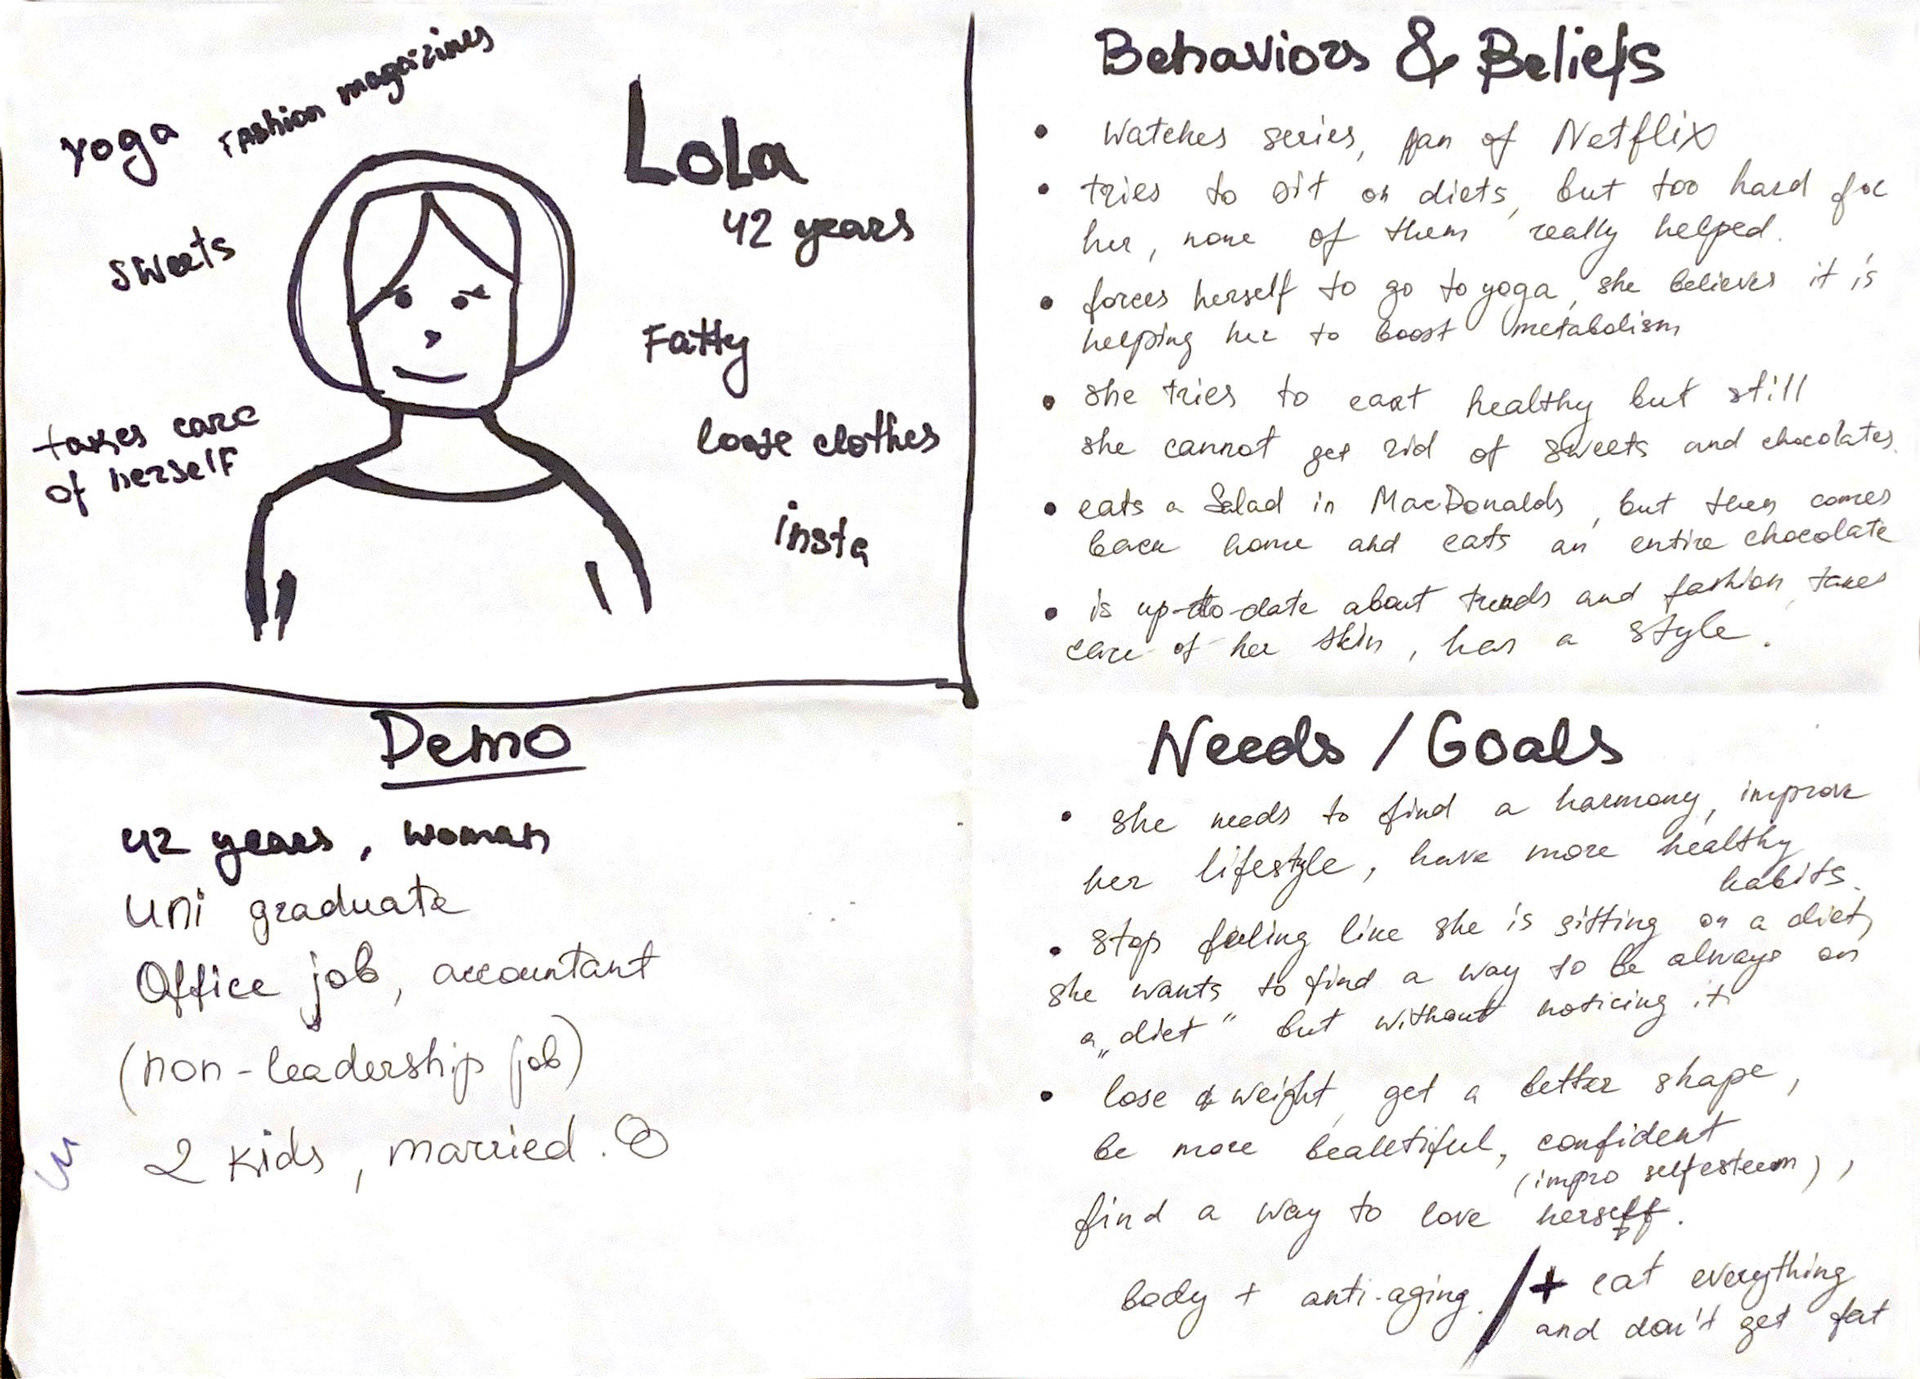 yoga
Fashion magazines
Lola
42 years
sweets
Fatty
takes care
of herself
loose clothes
insta
Behaviors & Beliefs
• Watches series, fan of Netflix
• tries to sit on diets, but too hard for
her, none of them really helped.
• forces herself to go to yoga, she believes it is
helping her to boost metabolism
• she tries to eat healthy but still
she cannot get rid of sweets and chocolates.
• eats a Salad in MacDonalds, but then comes
back home and eats an entire chocolate
• is up-to-date about trends and fashion, takes
care of her skin, has a style.
Demo
42 years, woman
Uni graduate
Office job, accountant
(non-leadership job)
2 kids, married.
Needs / Goals
• she needs to find a harmony, improve
her lifestyle, have more healthy
habits.
• stop feeling like she is sitting on a diet,
she wants to find a way to be always on
a „diet" but without noticing it
• lose weight, get a better shape,
be more beautiful, confident
(impro selfesteem),
find a way to love herself.
body + anti-aging. / + eat everything
and don't get fat